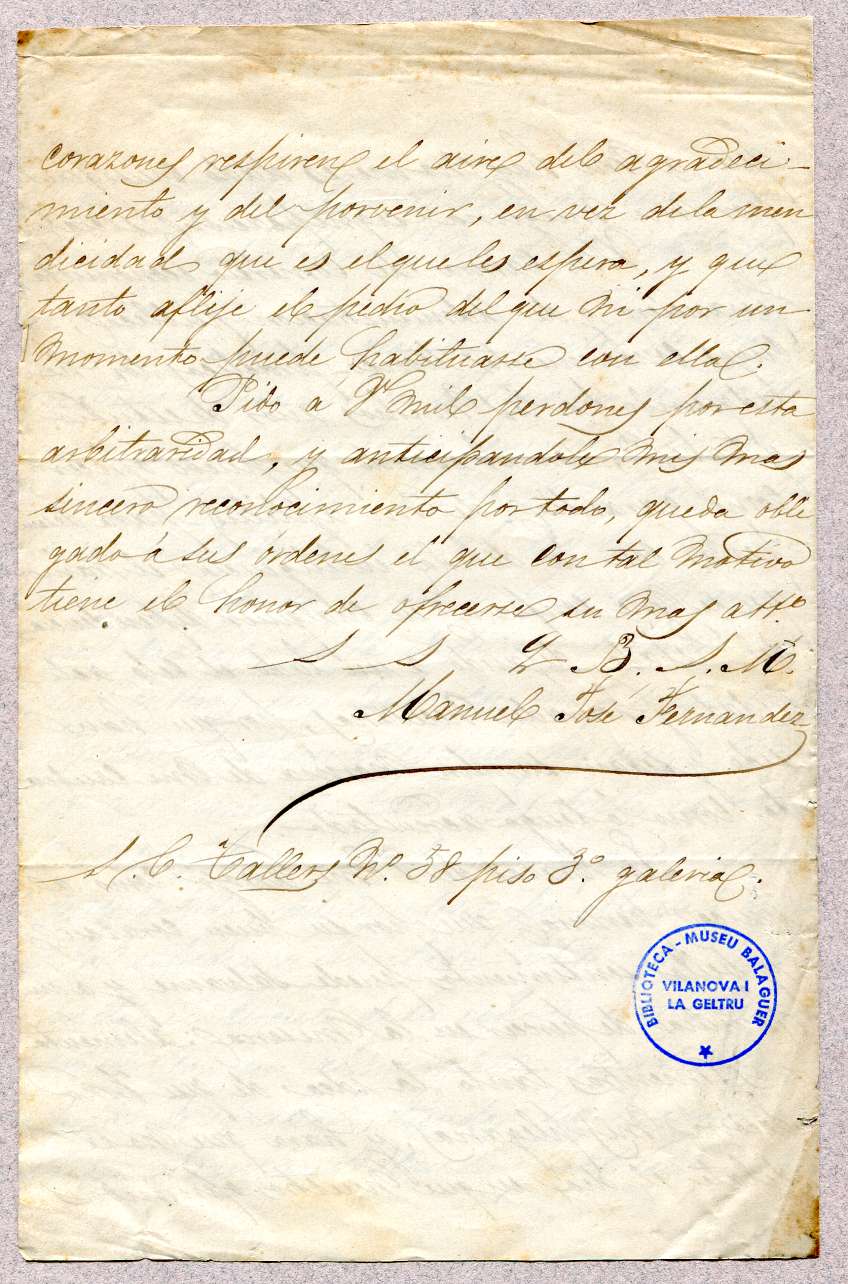 corazones respiren el aire del agradeci-
miento y del porvenir, en vez de la men
dicidad que es el que les espera, y que
tanto aflije el pecho del que ni por un
momento puede habituarse con ella.
Pido a V. mil perdones por esta
arbitraridad, y anticipandole mis mas
sincero reconocimiento por todo, queda obli
gado á sus órdenes el que con tal motivo
tiene el honor de ofrecerse su mas atto.
S S Q B. S. M.
Manuel José Fernandez
S. C. Tallers No. 58 piso 3.º galeria.
BIBLIOTECA - MUSEU BALAGUER
VILANOVA I
LA GELTRU